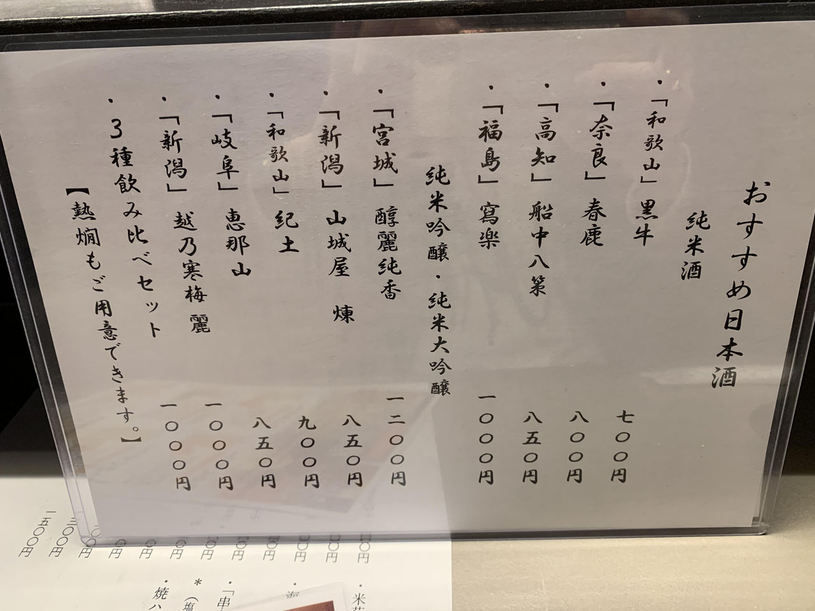 おすすめ日本酒
純米酒
・「和歌山」黒牛 七〇〇円
・「奈良」春鹿 八〇〇円
・「高知」船中八策 八五〇円
・「福島」寫楽 一〇〇〇円
純米吟醸・純米大吟醸
・「宮城」醇麗純香 一二〇〇円
・「新潟」山城屋 煉 八五〇円
・「和歌山」紀土 九〇〇円
・「岐阜」恵那山 八五〇円
・「新潟」越乃寒梅 麗 一〇〇〇円
・3種飲み比べセット 一〇〇〇円
【熱燗もご用意できます。】
一五〇〇円